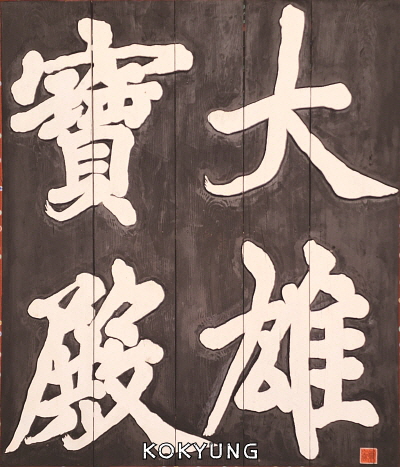 大雄
寶殿
KOKYUNG